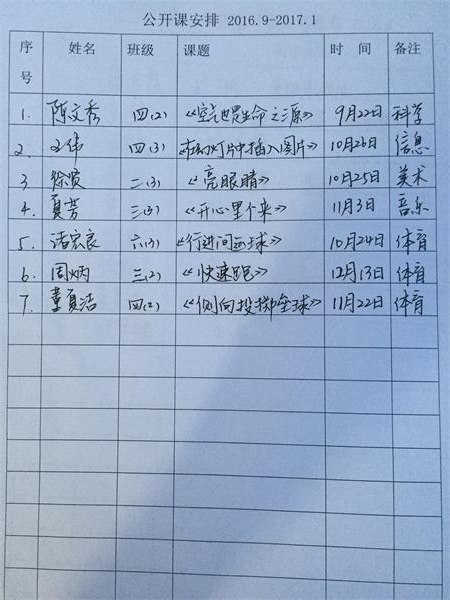 公开课安排 2016.9-2017.1
序号 姓名 班级 课题 时 间 备注
1. 陈文秀 四(2) 《空气也是生命之源》 9月22日 科学
2. 王伟 四(3) 《在幻灯片中插入图片》 10月26日 信息
3 徐贤 二(3) 《亮眼睛》 10月25日 美术
4. 夏芳 三(3) 《开心里个来》 11月3日 音乐
5. 诸宏良 六(3) 《行进间运球》 10月24日 体育
6. 周炳 三(2) 《快速跑》 12月13日 体育
7. 童夏洁 四(2) 《侧向投掷垒球》 11月22日 体育